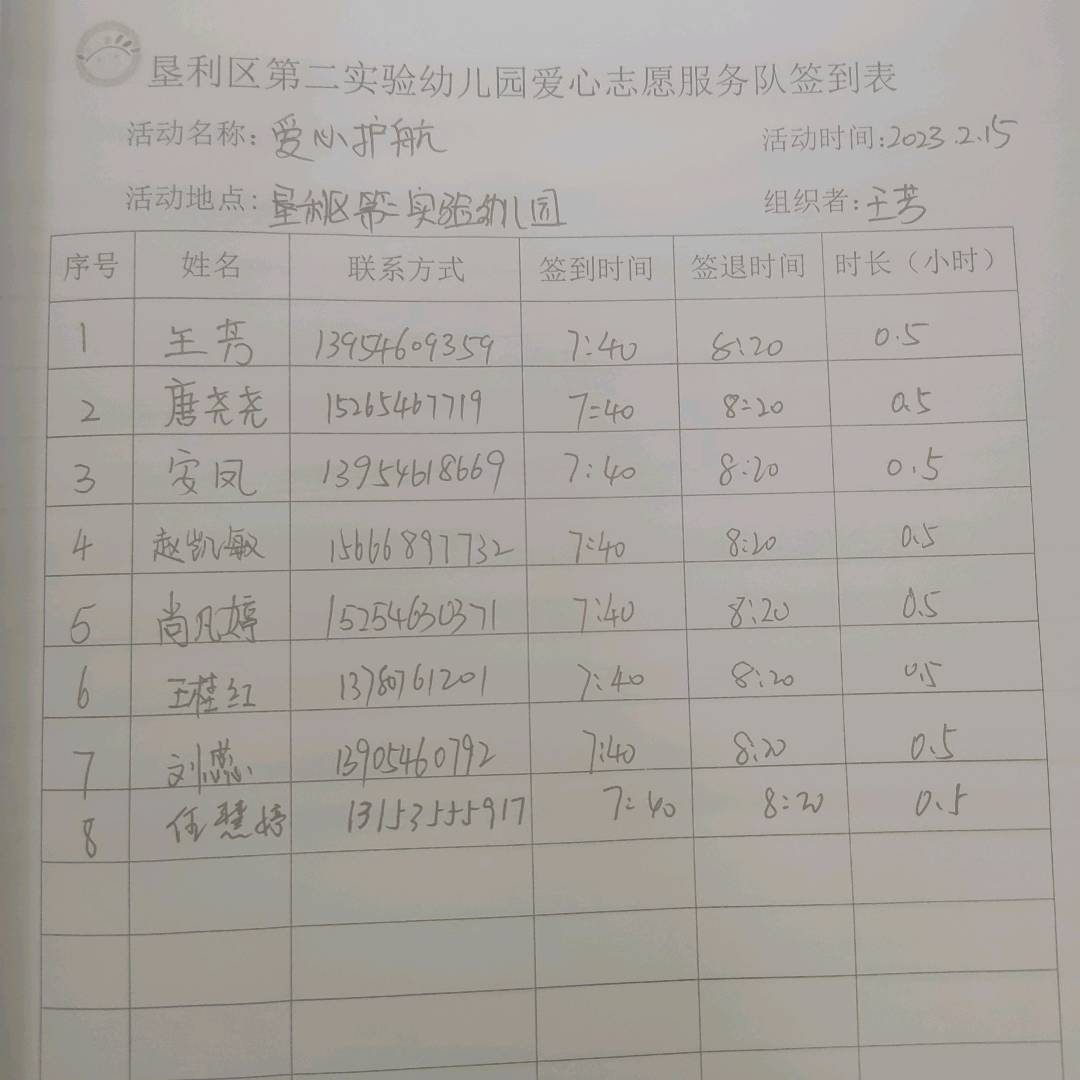 垦利区第二实验幼儿园爱心志愿服务队签到表
活动名称：爱心护航 活动时间：2023.2.15
活动地点：垦利区第二实验幼儿园 组织者：王芳
序号 姓名 联系方式 签到时间 签退时间 时长（小时）
1 王芳 13954609359 7:40 8:20 0.5
2 唐尧尧 15265467719 7:40 8:20 0.5
3 安凤 13954618669 7:40 8:20 0.5
4 赵凯敏 15666897732 7:40 8:20 0.5
5 尚凡婷 15254630371 7:40 8:20 0.5
6 王桂红 13780761201 7:40 8:20 0.5
7 刘蕊 13905460792 7:40 8:20 0.5
8 任慧婷 13153555917 7:40 8:20 0.5